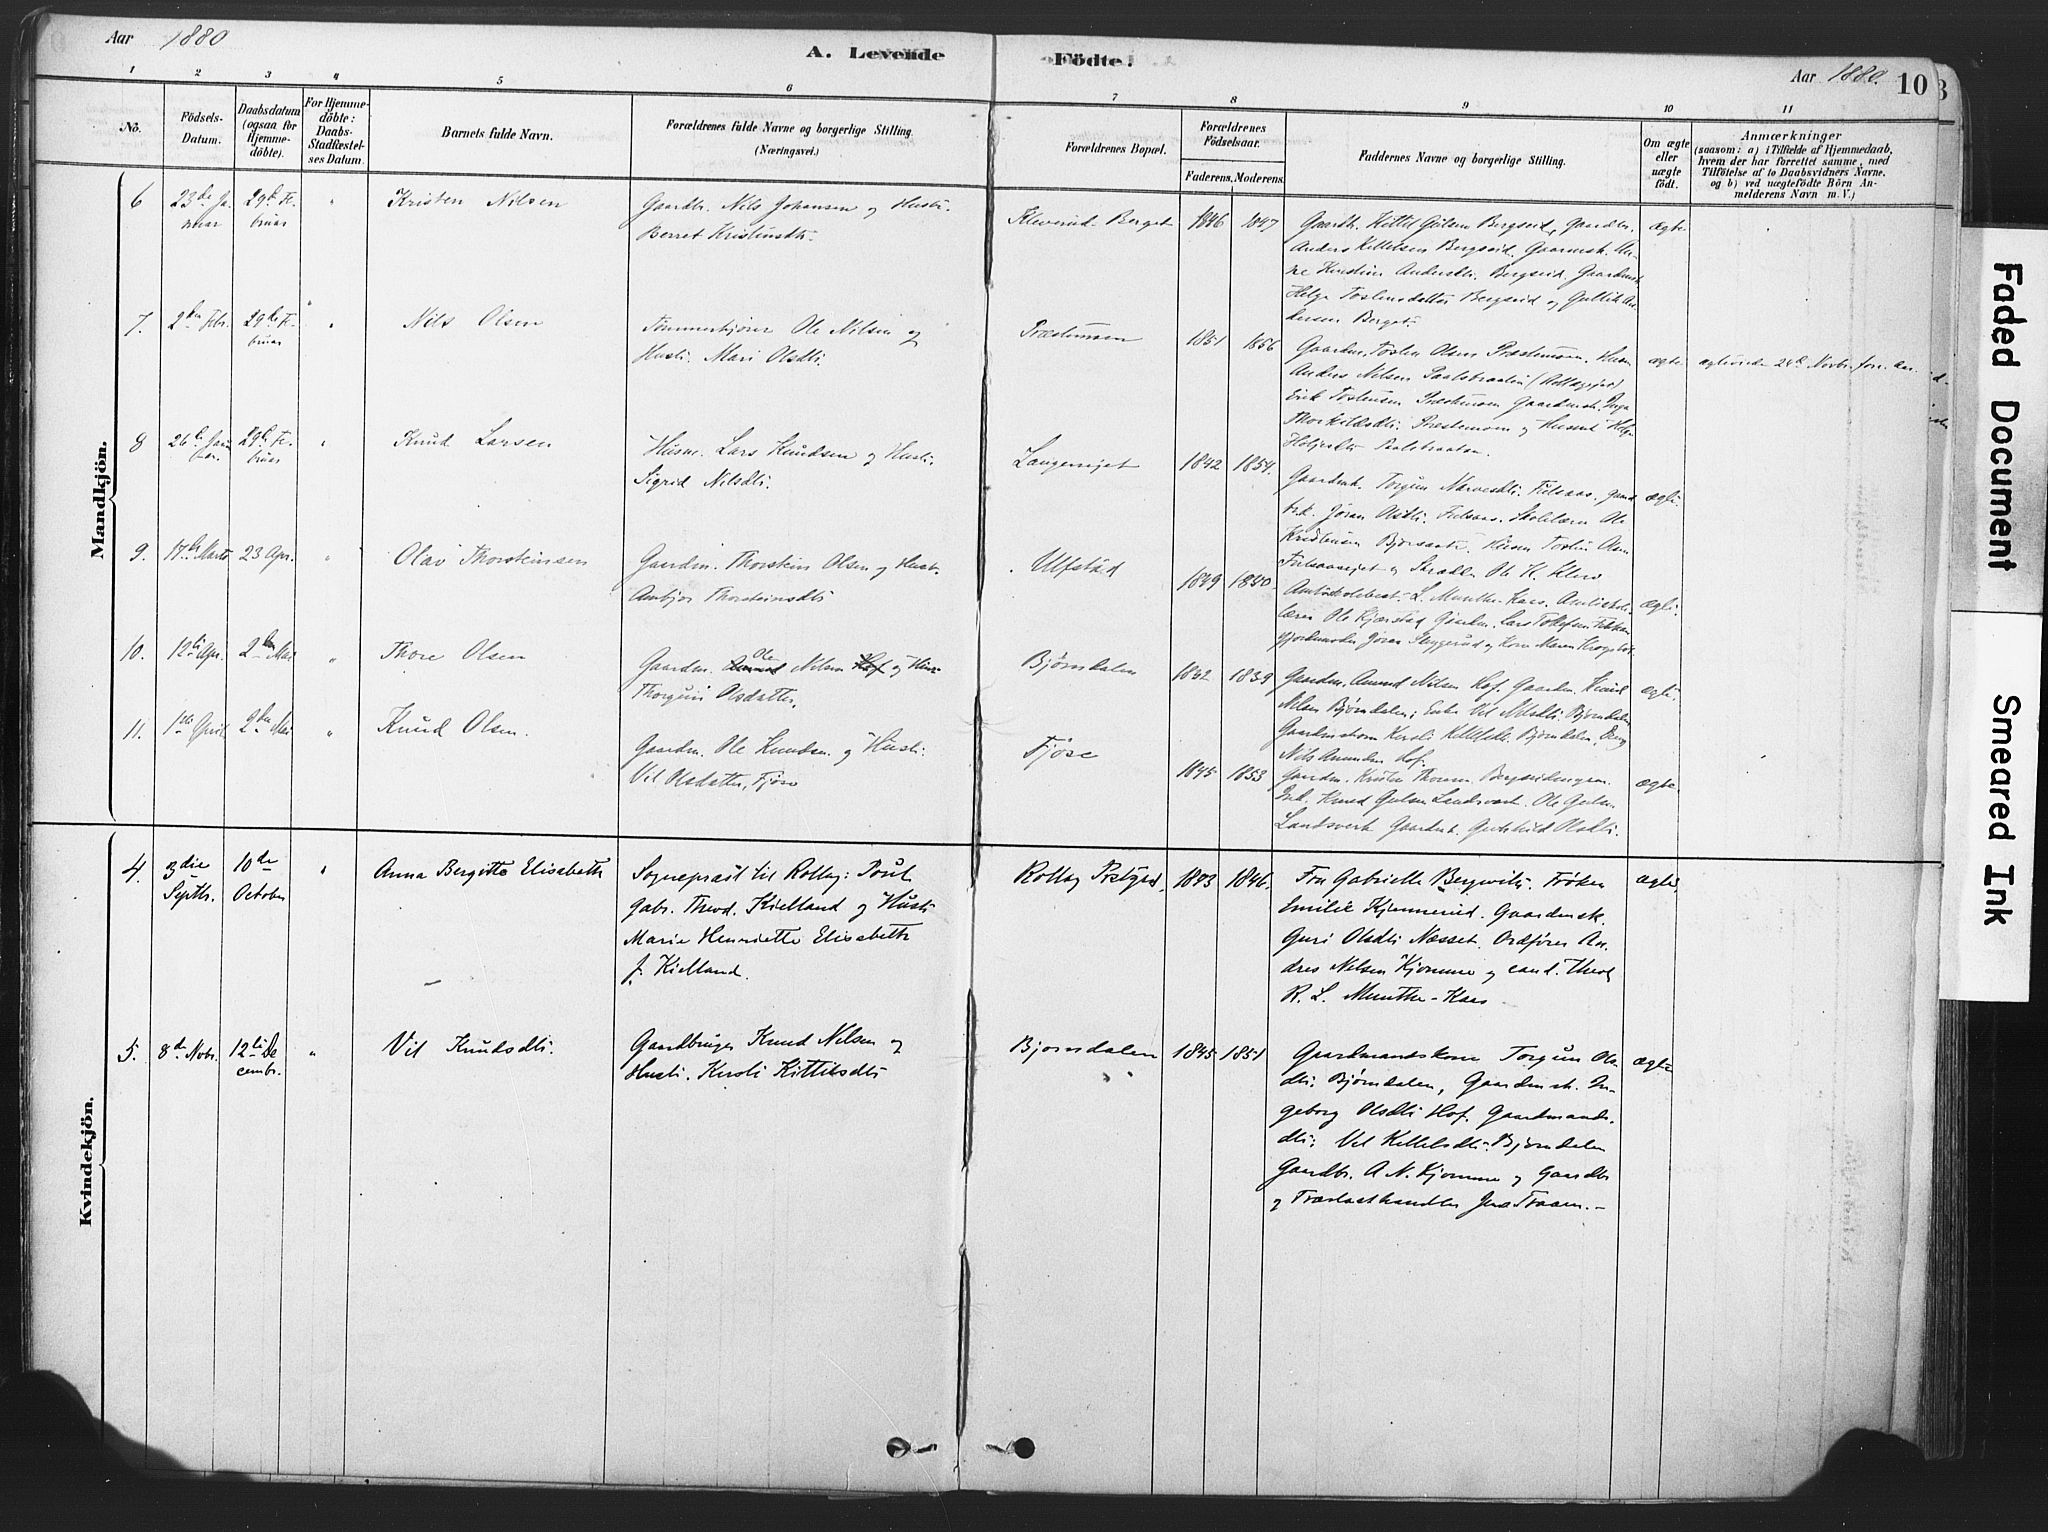 Aar 1880
A. Levende Födte.
Aar 1880.
10
1 2 3 4 5 6 7 8 9 10 11
No.
Födsels-
Datum.
Daabsdatum
(ogsaa for
Hjemme-
döbte).
For Hjemme-
döbte:
Daabs-
Stadfæstel-
ses Datum.
Barnets fulde Navn.
Forældrenes fulde Navne og borgerlige Stilling.
(Næringsvei.)
Forældrenes Bopæl.
Forældrenes
Födselsaar.
Faderens. Moderens.
Faddernes Navne og borgerlige Stilling.
Om ægte
eller
uægte
födt.
Anmærkninger
(saasom: a) i Tilfælde af Hjemmedaab,
hvem der har forrettet samme, med
Tilföielse af to Daabsvidners Navne,
og b) ved uægtefödte Börn An-
melderens Navn m. V.)
Mandkjön.
6 23de Ja-
nuar
29de Fe-
bruar
"
Kristen Nilsen
Gaardbr. Nils Johansen og Hustr.
Berret Kristensdtr.
Kleverud-Berget
1846 1847
Gaardbr. Kittel Gulsen Bergseid, Gaardbr.
Anders Kittelsen Bergseid, Gaardmsk.
Kirstine Andersdtr. Bergseid, Gaardmsk
Helge Tostensdatter Bergseid og Gullik An-
dersen Berget.
ægte
7. 2den Febr.
29de Fe-
bruar
"
Nils Olsen
Tømmerkjører Ole Nilsen og
Hustr. Mari Olsdtr.
Præstemoen
1851 1856
Gaardm. Tosten Olsen Præstemoen, Husm
Anders Nilsen Paalsbraaten
Erik Tostensen Præstemoen Gaardmsk.
Thorkildsdtr. Præstemoen og
Paalsbraaten.
ægte
24de Novbr. forr. Aar.
8 26de Janu-
ar.
29de Fe-
bruar
"
Knud Larsen
Husm. Lars Knudsen og Hustr.
Sigrid Nilsdtr.
1842 1854.
Gaardmsk. Torgun Narvesdtr. Fulsaas, Gaard
Jøran Olsdtr. Fulsaas. Skolelærer Ole
Kristensen
Husm Tosten Olsen
og Skrædder Ole K.
ægte
9. 17de Marts 23 Apr. "
Olav Thorsteinsen
Gaardm. Thorstein Olsen og Hust.
Ambjor Thorsteinsdtr
Ulfstad
1849 1840
Amtsskolebest. L. Munthe-Kaas, Amtsskole
lærer Ole Kjærstad Gaardm. Lars Tollefsen
Jøran Skuggerud og Kone Maren
ægte
10. 12te Apr. 2den Mai "
Thore Olsen
Gaardm. Ole Nilsen og Hust.
Thorgun Olsdatter.
Bjørndalen
1842 1839
Gaardm. Amund Nilsen Hof, Gaardm. Knud
Nilsen Bjørndalen; Enke Vil Nilsdtr. Bjørndalen,
Gaardmandskone Kersti Kittilsdtr. Bjørndalen,
Nils Amundsen Hof.
ægte
11. 1ste April 2den Mai "
Knud Olsen.
Gaardm. Ole Knudsen og Hustr.
Vil Olsdatter, Fjøse
Fjøse
1845 1853
Gaardm. Kristen Thoresen
Knud Gulsen Landsverk. Ole Gulsen
Landsverk Gaardmsk. Olsdtr.
ægte.
Kvindekjön.
4. 3die
Septbr.
10de
October
"
Anna Bergitte Elisabeth
Sognepræst til Rollag: Poul
Gabr. Theod. Kielland og Hustr.
Marie Henriette Elisabeth
f. Kielland.
Rollag Præstgrd.
1843 1846.
Fru Gabrielle Bergwitz, Frøken
Emilie Kjennerud, Gaardmsk.
Guri Olsdtr Næsset. Ordfører An-
dres Nilsen Kjomme og cand. theol
R. L. Munthe-Kaas
ægte
5. 8de Novbr.
12te De
cembr.
"
Vil Knudsdtr.
Gaardbruger Knud Nilsen og
Hustr. Kersti Kittilsdtr
Bjørndalen
1845 1851
Gaardmandskone Torgun Ols-
dtr. Bjørndalen, Gaardmsk. In-
geborg Olsdtr Hof, Gaardmands-
dtr. Vil Kittelsdtr. Bjørndalen
Gaardbr. A. N. Kjomme og Gaardbr
og Trælasthandler Jens Traaen.-
ægte
Faded Document
Smeared Ink